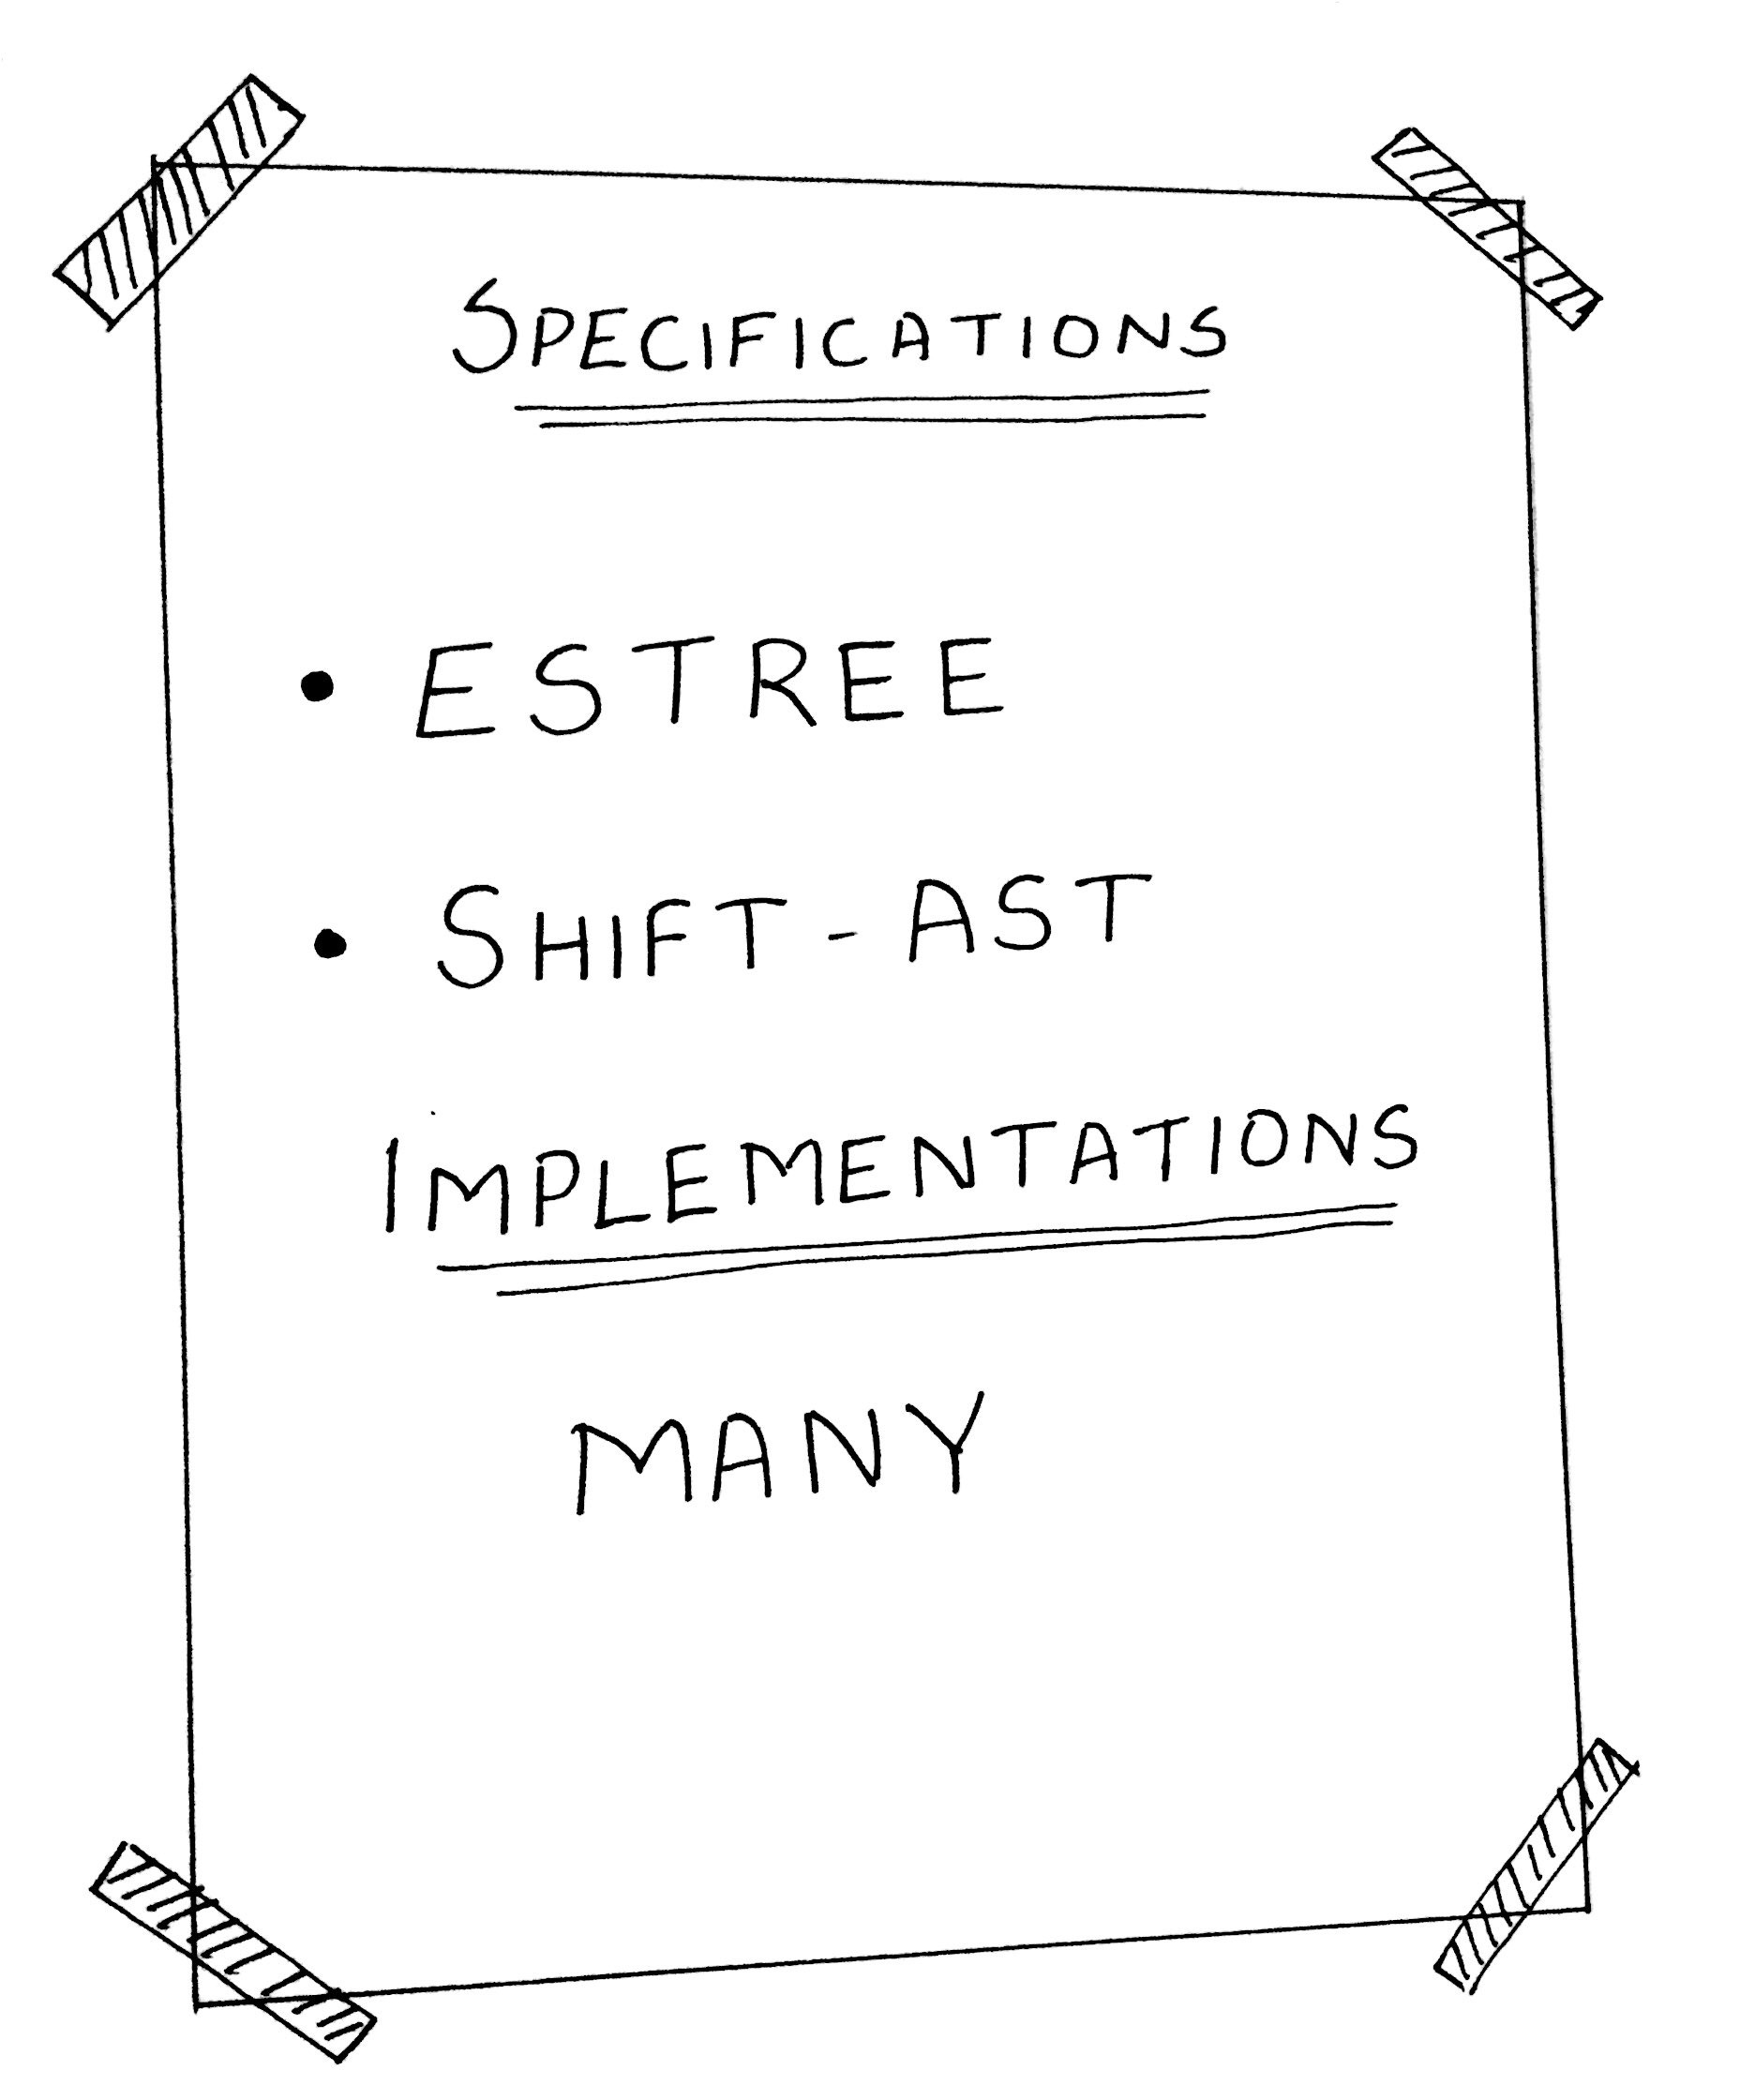 SPECIFICATIONS
• ESTREE
• SHIFT - AST
IMPLEMENTATIONS
MANY